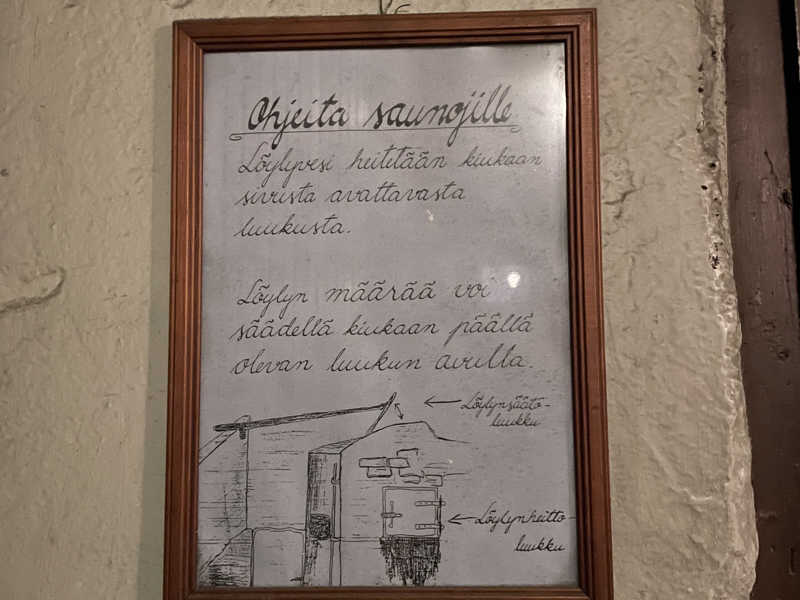 Ohjeita saunojille
Löylyvesi heitetään kiukaan
sivusta avattavasta
luukusta.
Löylyn määrää voi
säädellä kiukaan päällä
olevan luukun avulla.
Löylynsäätö-
luukku
Löylynheitto-
luukku